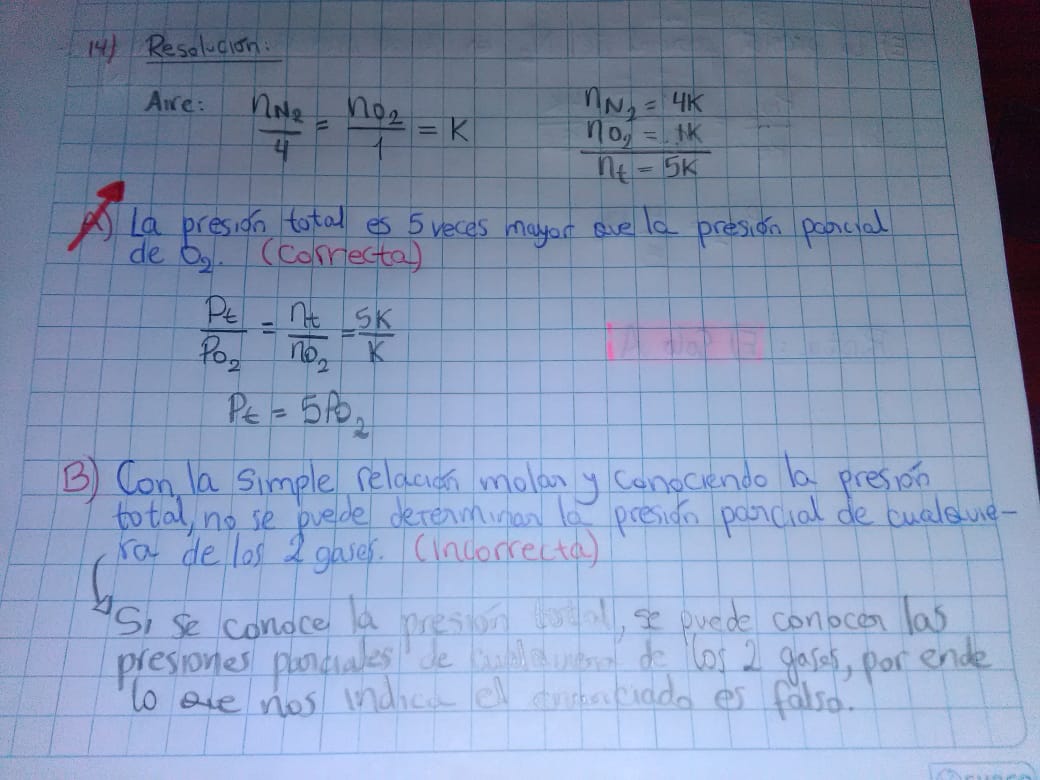 14) Resolución:
Aire: nN2/4 = nO2/1 = K
nN2 = 4K
nO2 = 1K
nt = 5K
A) La presión total es 5 veces mayor que la presión parcial
de O2. (Correcta)
Pt/PO2 = nt/nO2 = 5K/K
Pt = 5PO2
B) Con la simple relación molar y conociendo la presión
total, no se puede determinar la presión parcial de cualquie-
ra de los 2 gases. (Incorrecta)
Si se conoce la presión total, se puede conocer las
presiones parciales de cualquiera de los 2 gases, por ende
lo que nos indica el enunciado es falso.